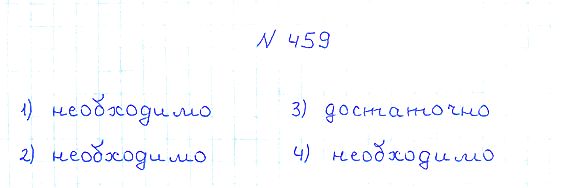 N 459
1) необходимо 3) достаточно
2) необходимо 4) необходимо